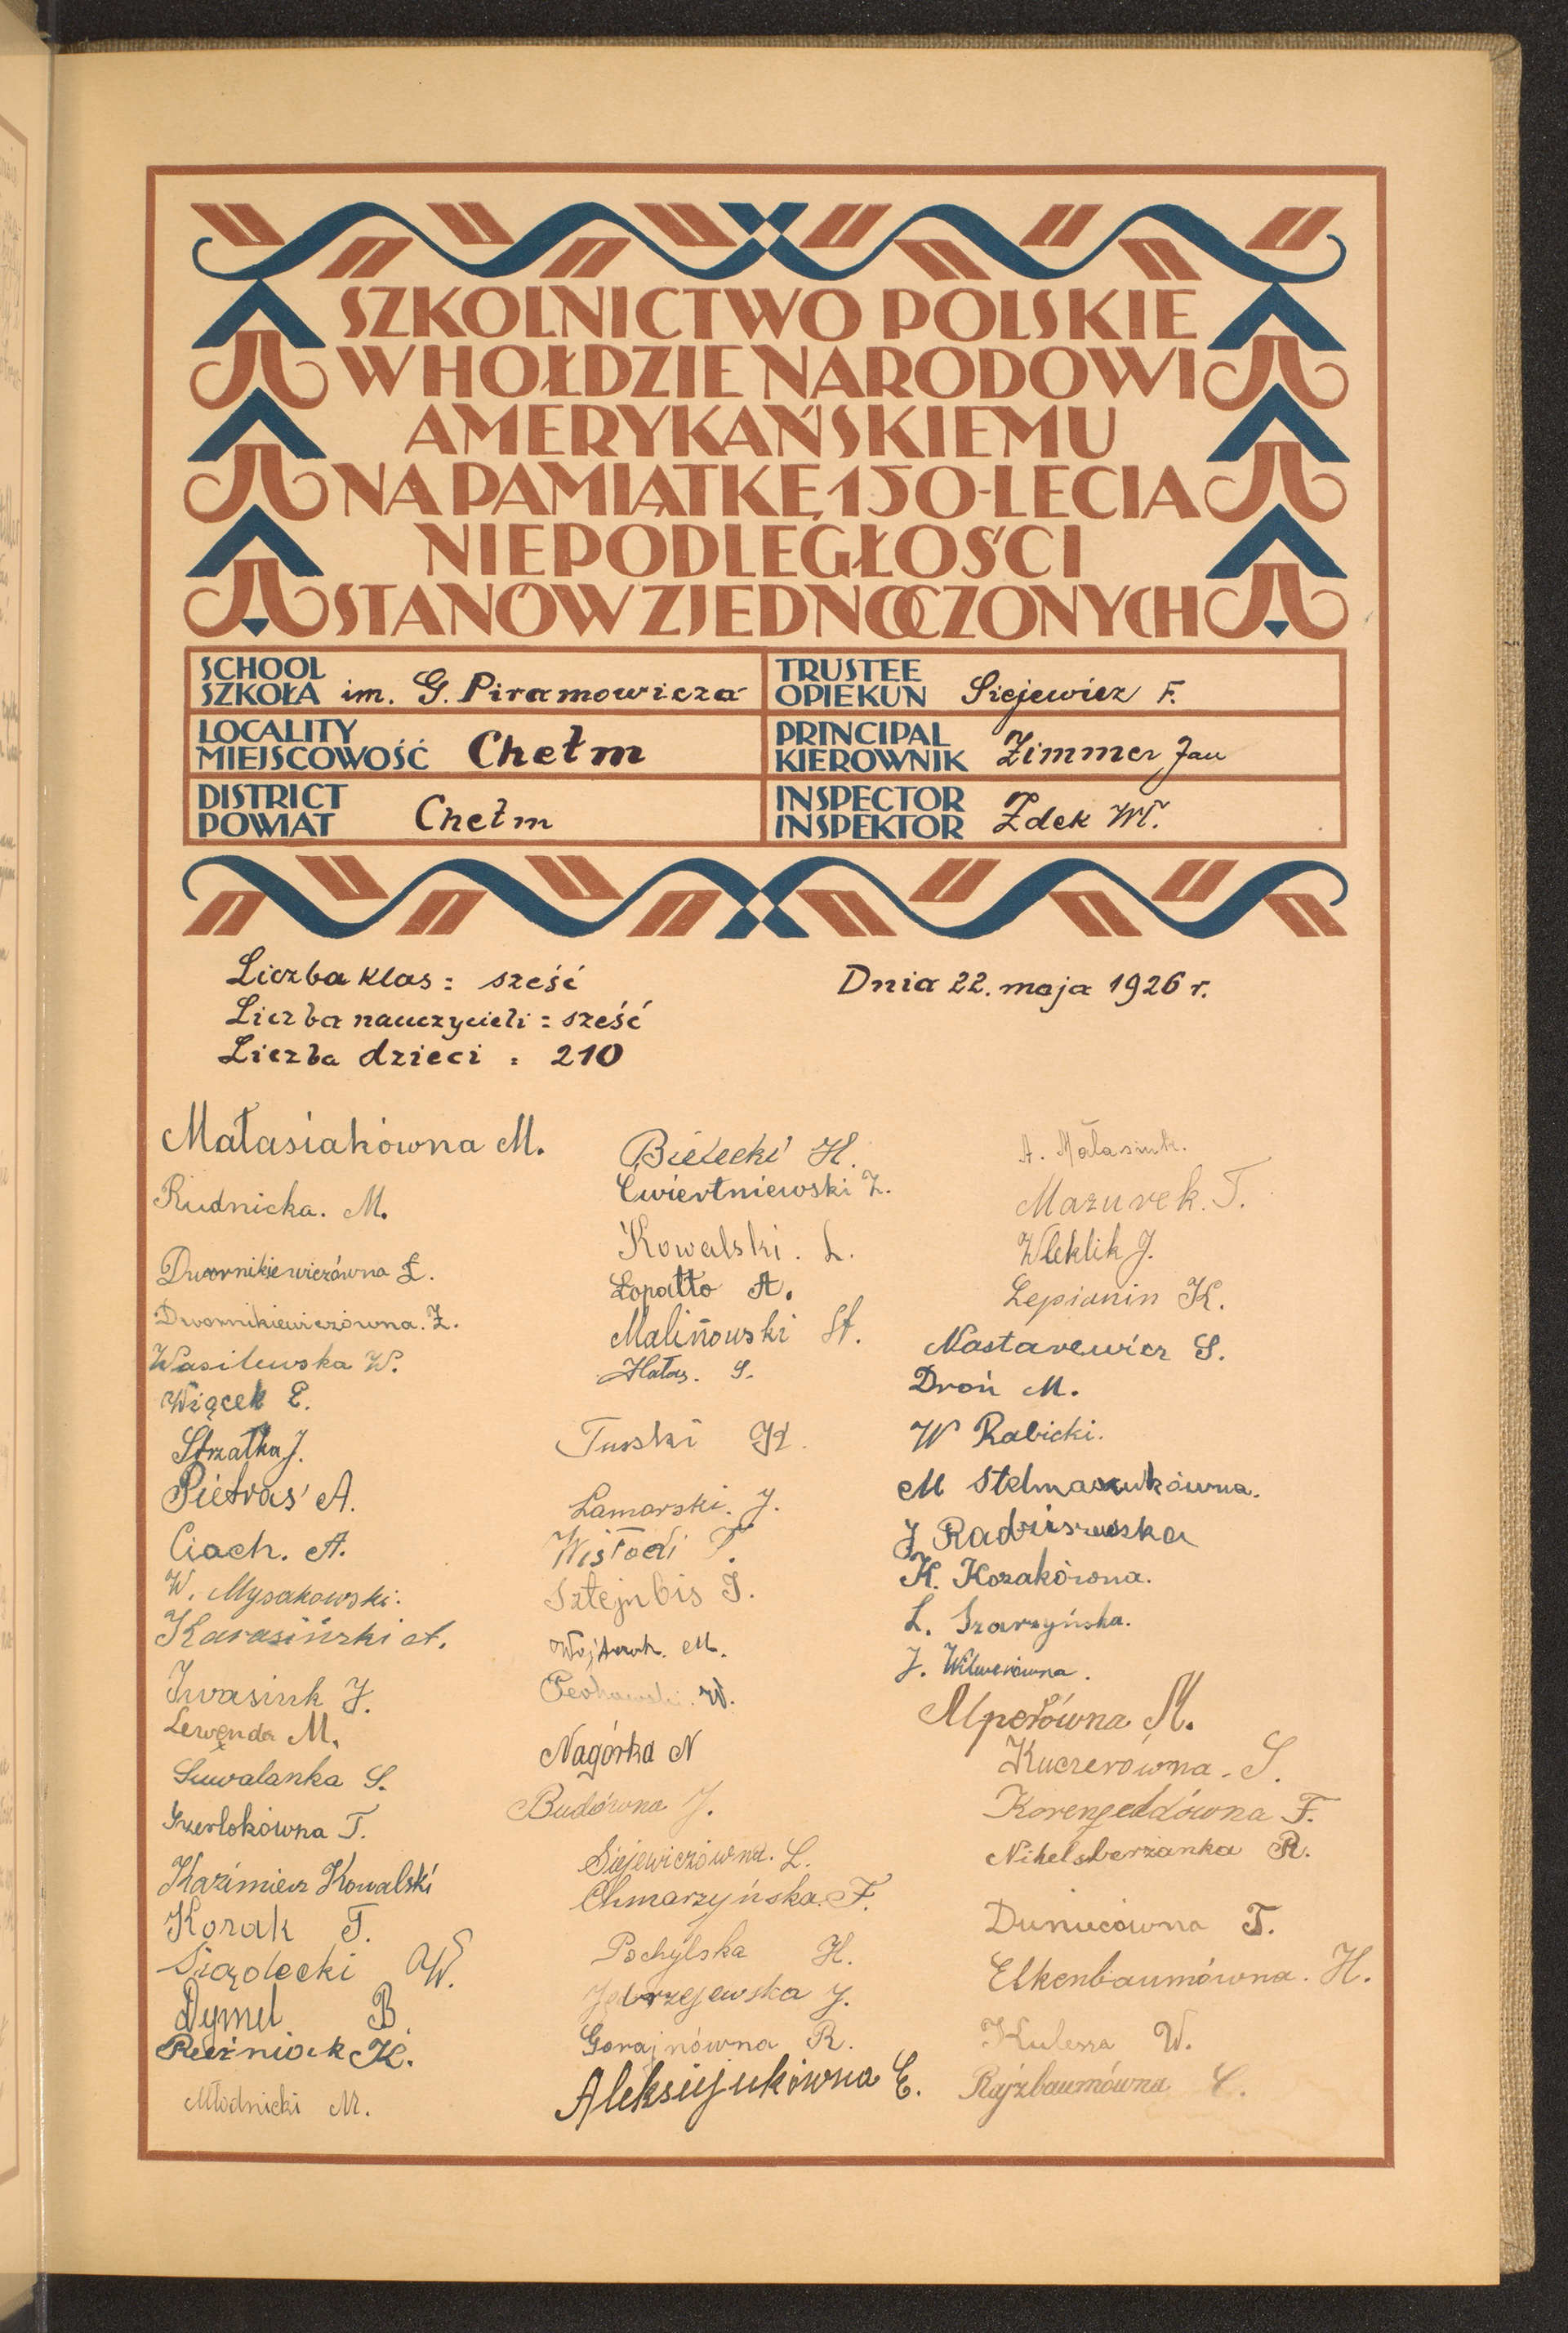 SZKOLNICTWO POLSKIE
W HOŁDZIE NARODOWI
AMERYKAŃSKIEMU
NA PAMIĄTKĘ 150-LECIA
NIEPODLEGŁOŚCI
STANÓW ZJEDNOCZONYCH
SCHOOL
SZKOŁA im. G. Piramowicza
TRUSTEE
OPIEKUN Siejewicz F.
LOCALITY
MIEJSCOWOŚĆ Chełm
PRINCIPAL
KIEROWNIK Zimmer Jan
DISTRICT
POWIAT Chełm
INSPECTOR
INSPEKTOR Zdek Wł.
Liczba klas = sześć
Liczba nauczycieli = sześć
Liczba dzieci = 210
Dnia 22. maja 1926 r.
Małasiakówna M.
Rudnicka. M.
Dwornikiewiczówna Ł.
Dwornikiewiczówna. Z.
Wasilewska W.
Wiącek E.
Strzałka J.
Pietraś A.
Ciach. A.
W. Mysakowski.
Karasiński A.
Iwasiuk J.
Lewenda M.
Suwalanka S.
Szerlokówna T.
Kazimierz Kowalski
Kozak T.
Siądecki W.
Dymel B
Reźniak K.
Młodnicki M.
Bielecki H.
Ćwiertniewski Z.
Kowalski. L.
Łopatto A.
Malinowski St.
Hałas. S.
Turski K.
Lamorski. J.
Wisłocki T.
Sztejnbis J.
Wojtczuk. M.
W.
Nagórka N
Budówna J.
Siejewiczówna. L.
Chmarzyńska. F.
Pochylska H.
Jędrzejewska J.
Gorajnówna R.
Aleksiejukówna E.
A. Małasiuk.
Mazurek. T.
Wleklik J.
Lepianin K.
Nastarewicz S.
Droń M.
W Rabicki.
M Stelmaszukówna.
J Radziszewska
K. Kozakówna.
L. Szarzyńska.
J. Wilwerówna.
Alperówna M.
Kuczerówna. S.
Korengoldówna F.
Nikelsberżanka R.
Duniecówna T.
Elkenbaumówna. H.
Kulesza W.
Rajzbaumówna C.